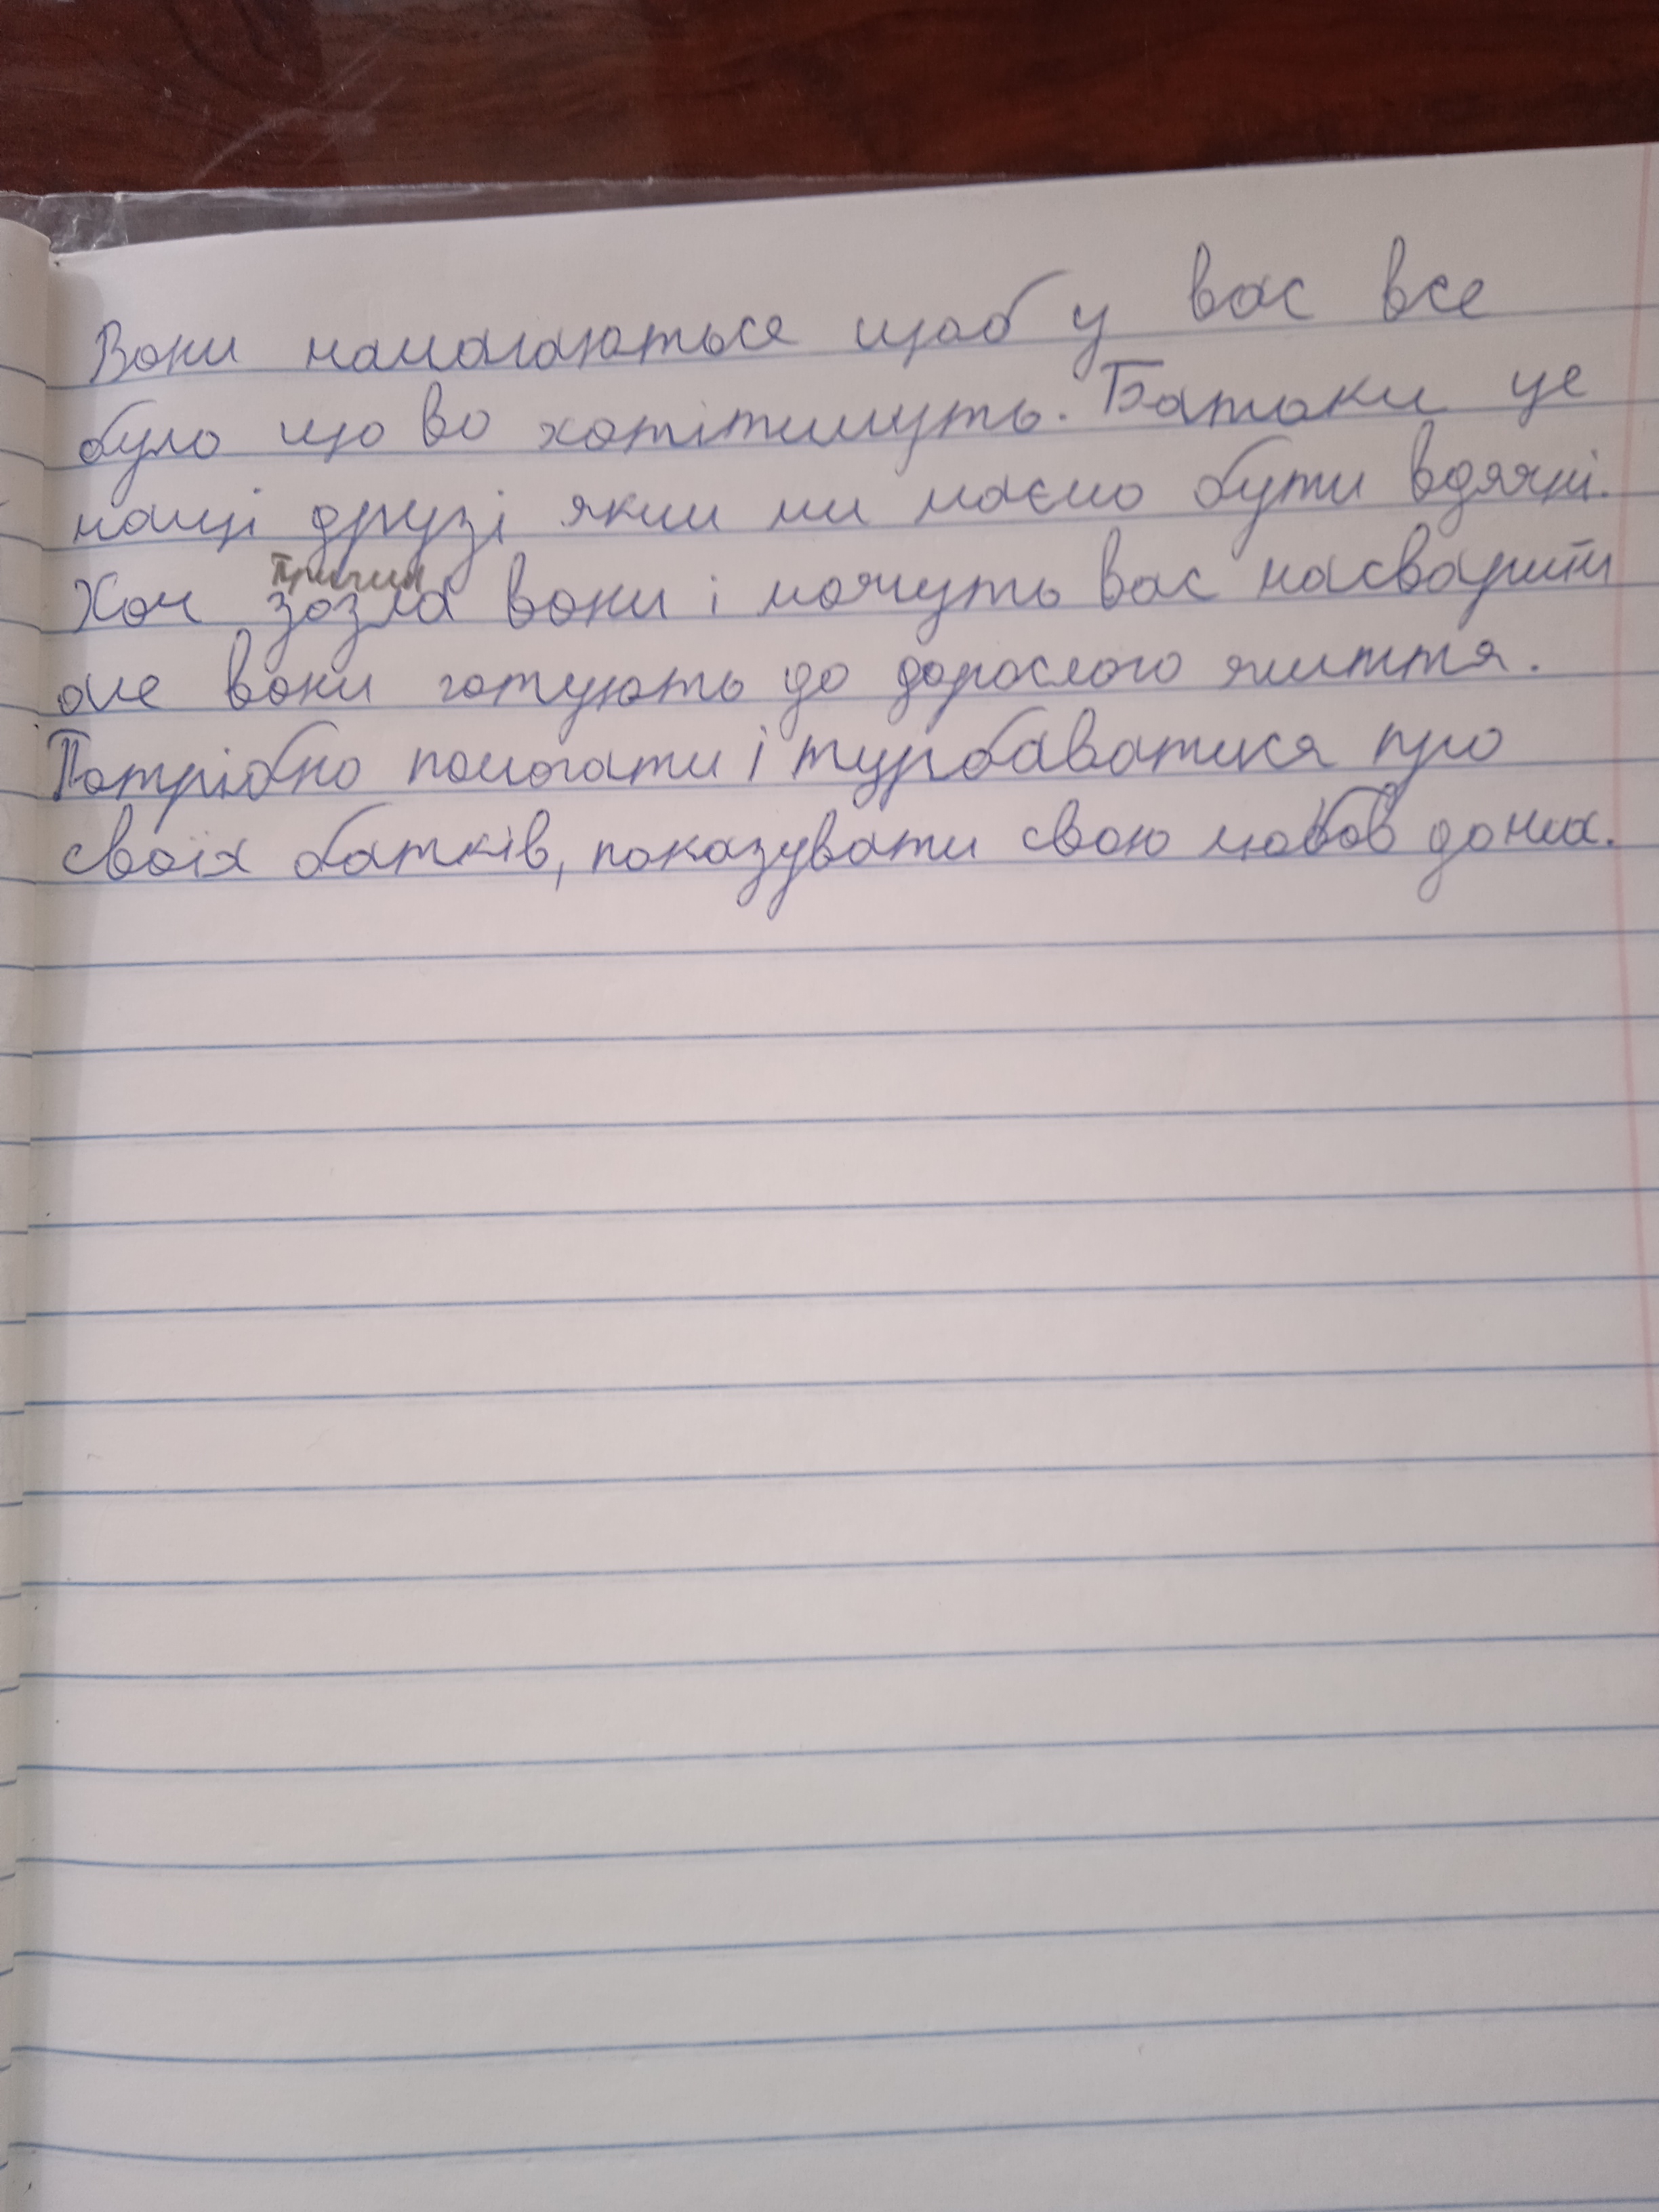 Вони намагаються щоб у вас все
було що во хотітимуть. Батьки це
наші друзі яким ми маємо бути вдячні.
Хоч зазла вони і можуть вас насварити
але вони готують до дорослого життя.
Потрібно помогати і турбаватися про
своїх батків, показувати свою любов до них.